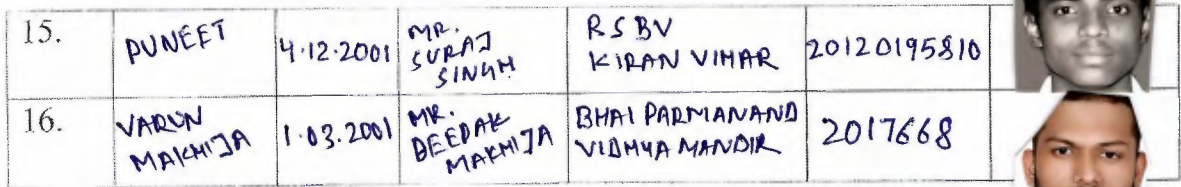 15. PUNEET 4.12.2001 MR. SURAJ SINGH RSBV KIRAN VIHAR 20120195810
16. VARUN MAKHIJA 1.03.2001 MR. DEEPAK MAKHIJA BHAI PARMANAND VIDHYA MANDIR 2017668